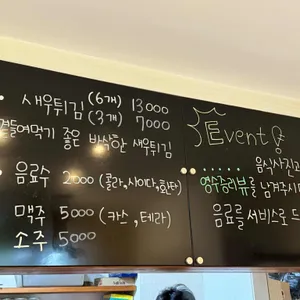 새우튀김 (6개) 13000
(3개) 7000
곁들여먹기 좋은 바삭한 새우튀김
음료수 2000 (콜라,사이다,환타)
맥주 5000 (카스, 테라)
소주 5000
Event
음식사진과
영수증리뷰를 남겨주시
음료를 서비스로 드